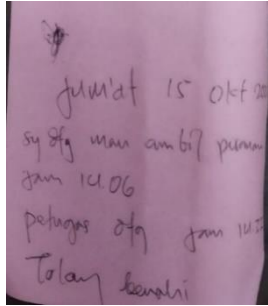 Jum'at 15 Okt 20
sy dtg mau ambil
jam 14.06
petugas dtg jam 14.
Tolong benahi